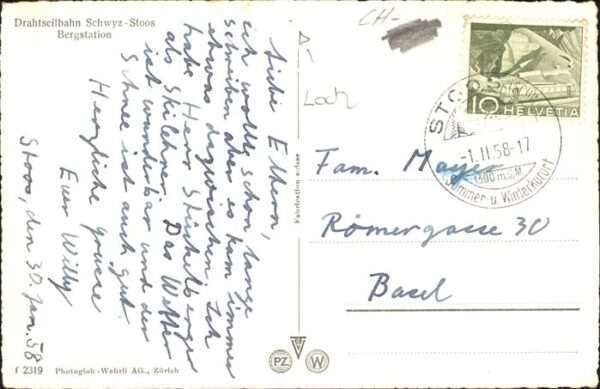 Drahtseilbahn Schwyz-Stoos
Bergstation
Liebe Eltern,
ich wollte schon lange
schreiben aber es kam immer
etwas dazwischen. Ich
habe Herr Stückelberger
als Skilehrer. Das Wetter
ist wunderbar und der
Schnee ist auch gut.
Herzliche grüsse
Euer Willy
Stoos, den 30. Jan. 58
f 2319 Photoglob-Wehrli AG., Zürich
Fabrikation suisse
PZ W
CH-
10 HELVETIA
STOOS
-1.II.58-17
1300 m.ü.M.
Sommer u. Winterkurort
Fam. Mayer
Römergasse 30
Basel